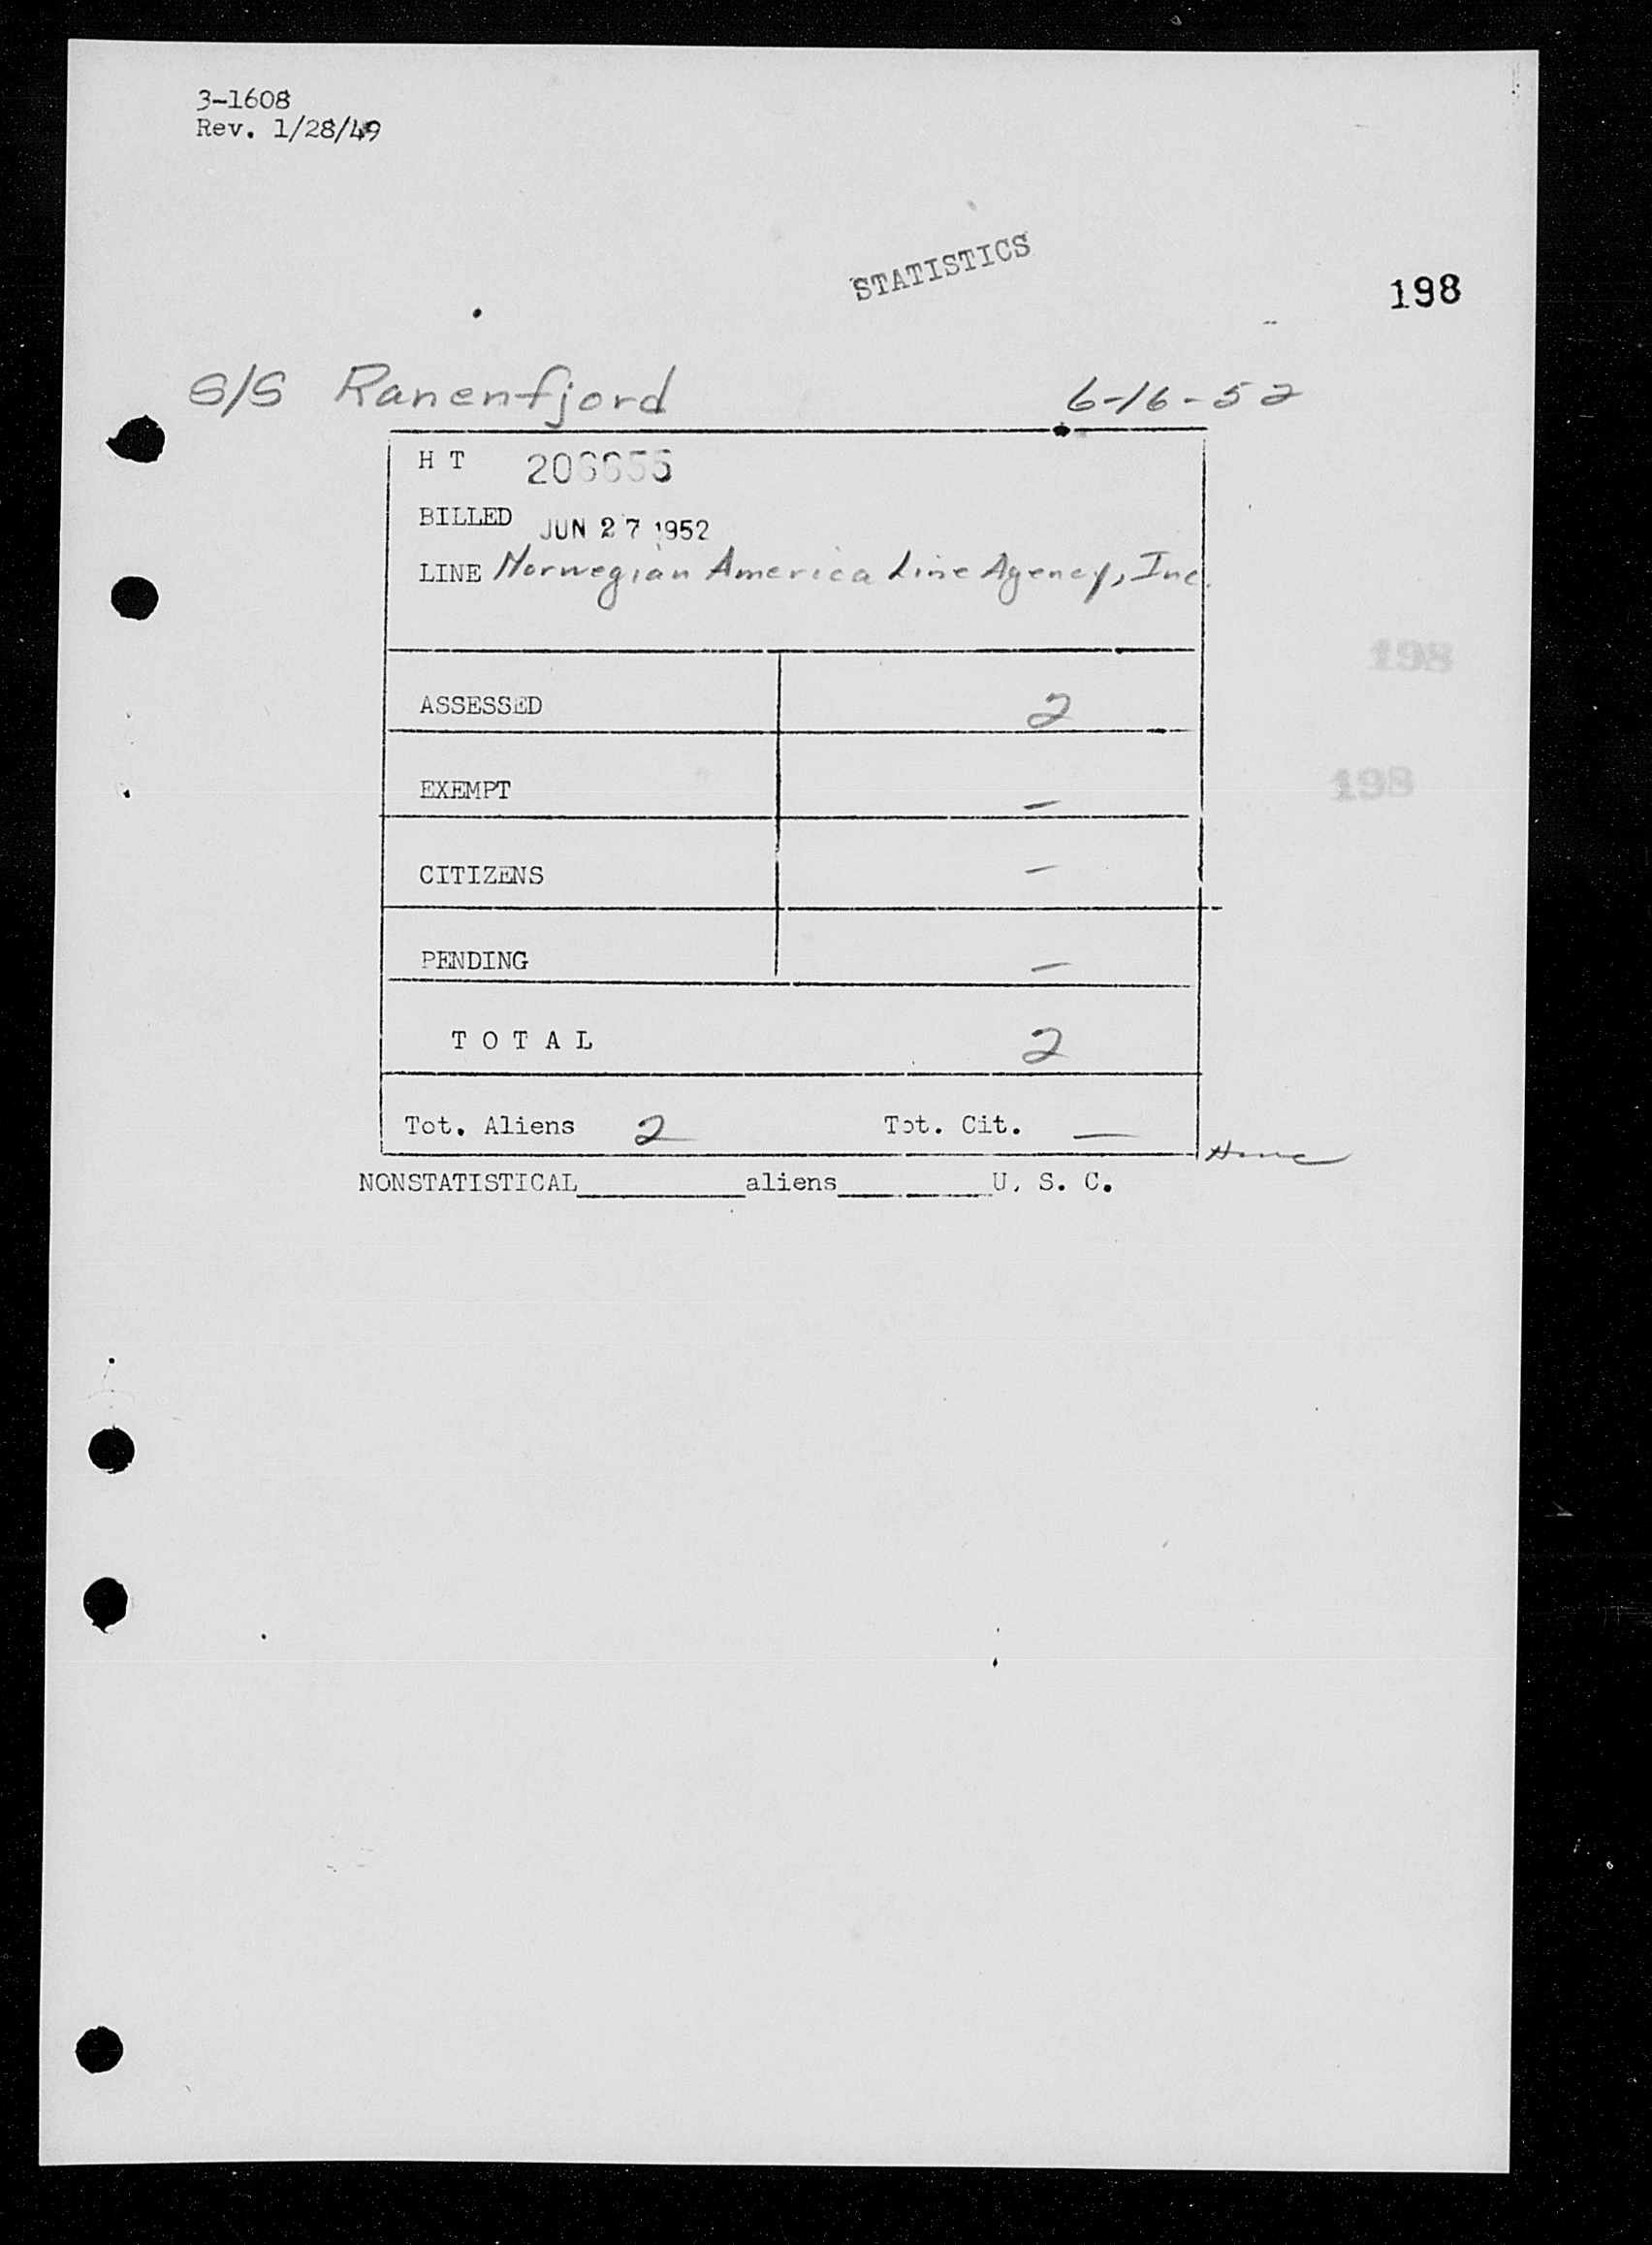 3-1608
Rev. 1/28/49
STATISTICS
198
S/S Ranenfjord 6-16-52
H T 206655
BILLED JUN 27 1952
LINE Norwegian America Line Agency, Inc.
198
ASSESSED 2
EXEMPT —
198
CITIZENS —
PENDING —
T O T A L 2
Tot. Aliens 2 Tot. Cit. —
NONSTATISTICAL__________aliens__________U. S. C.